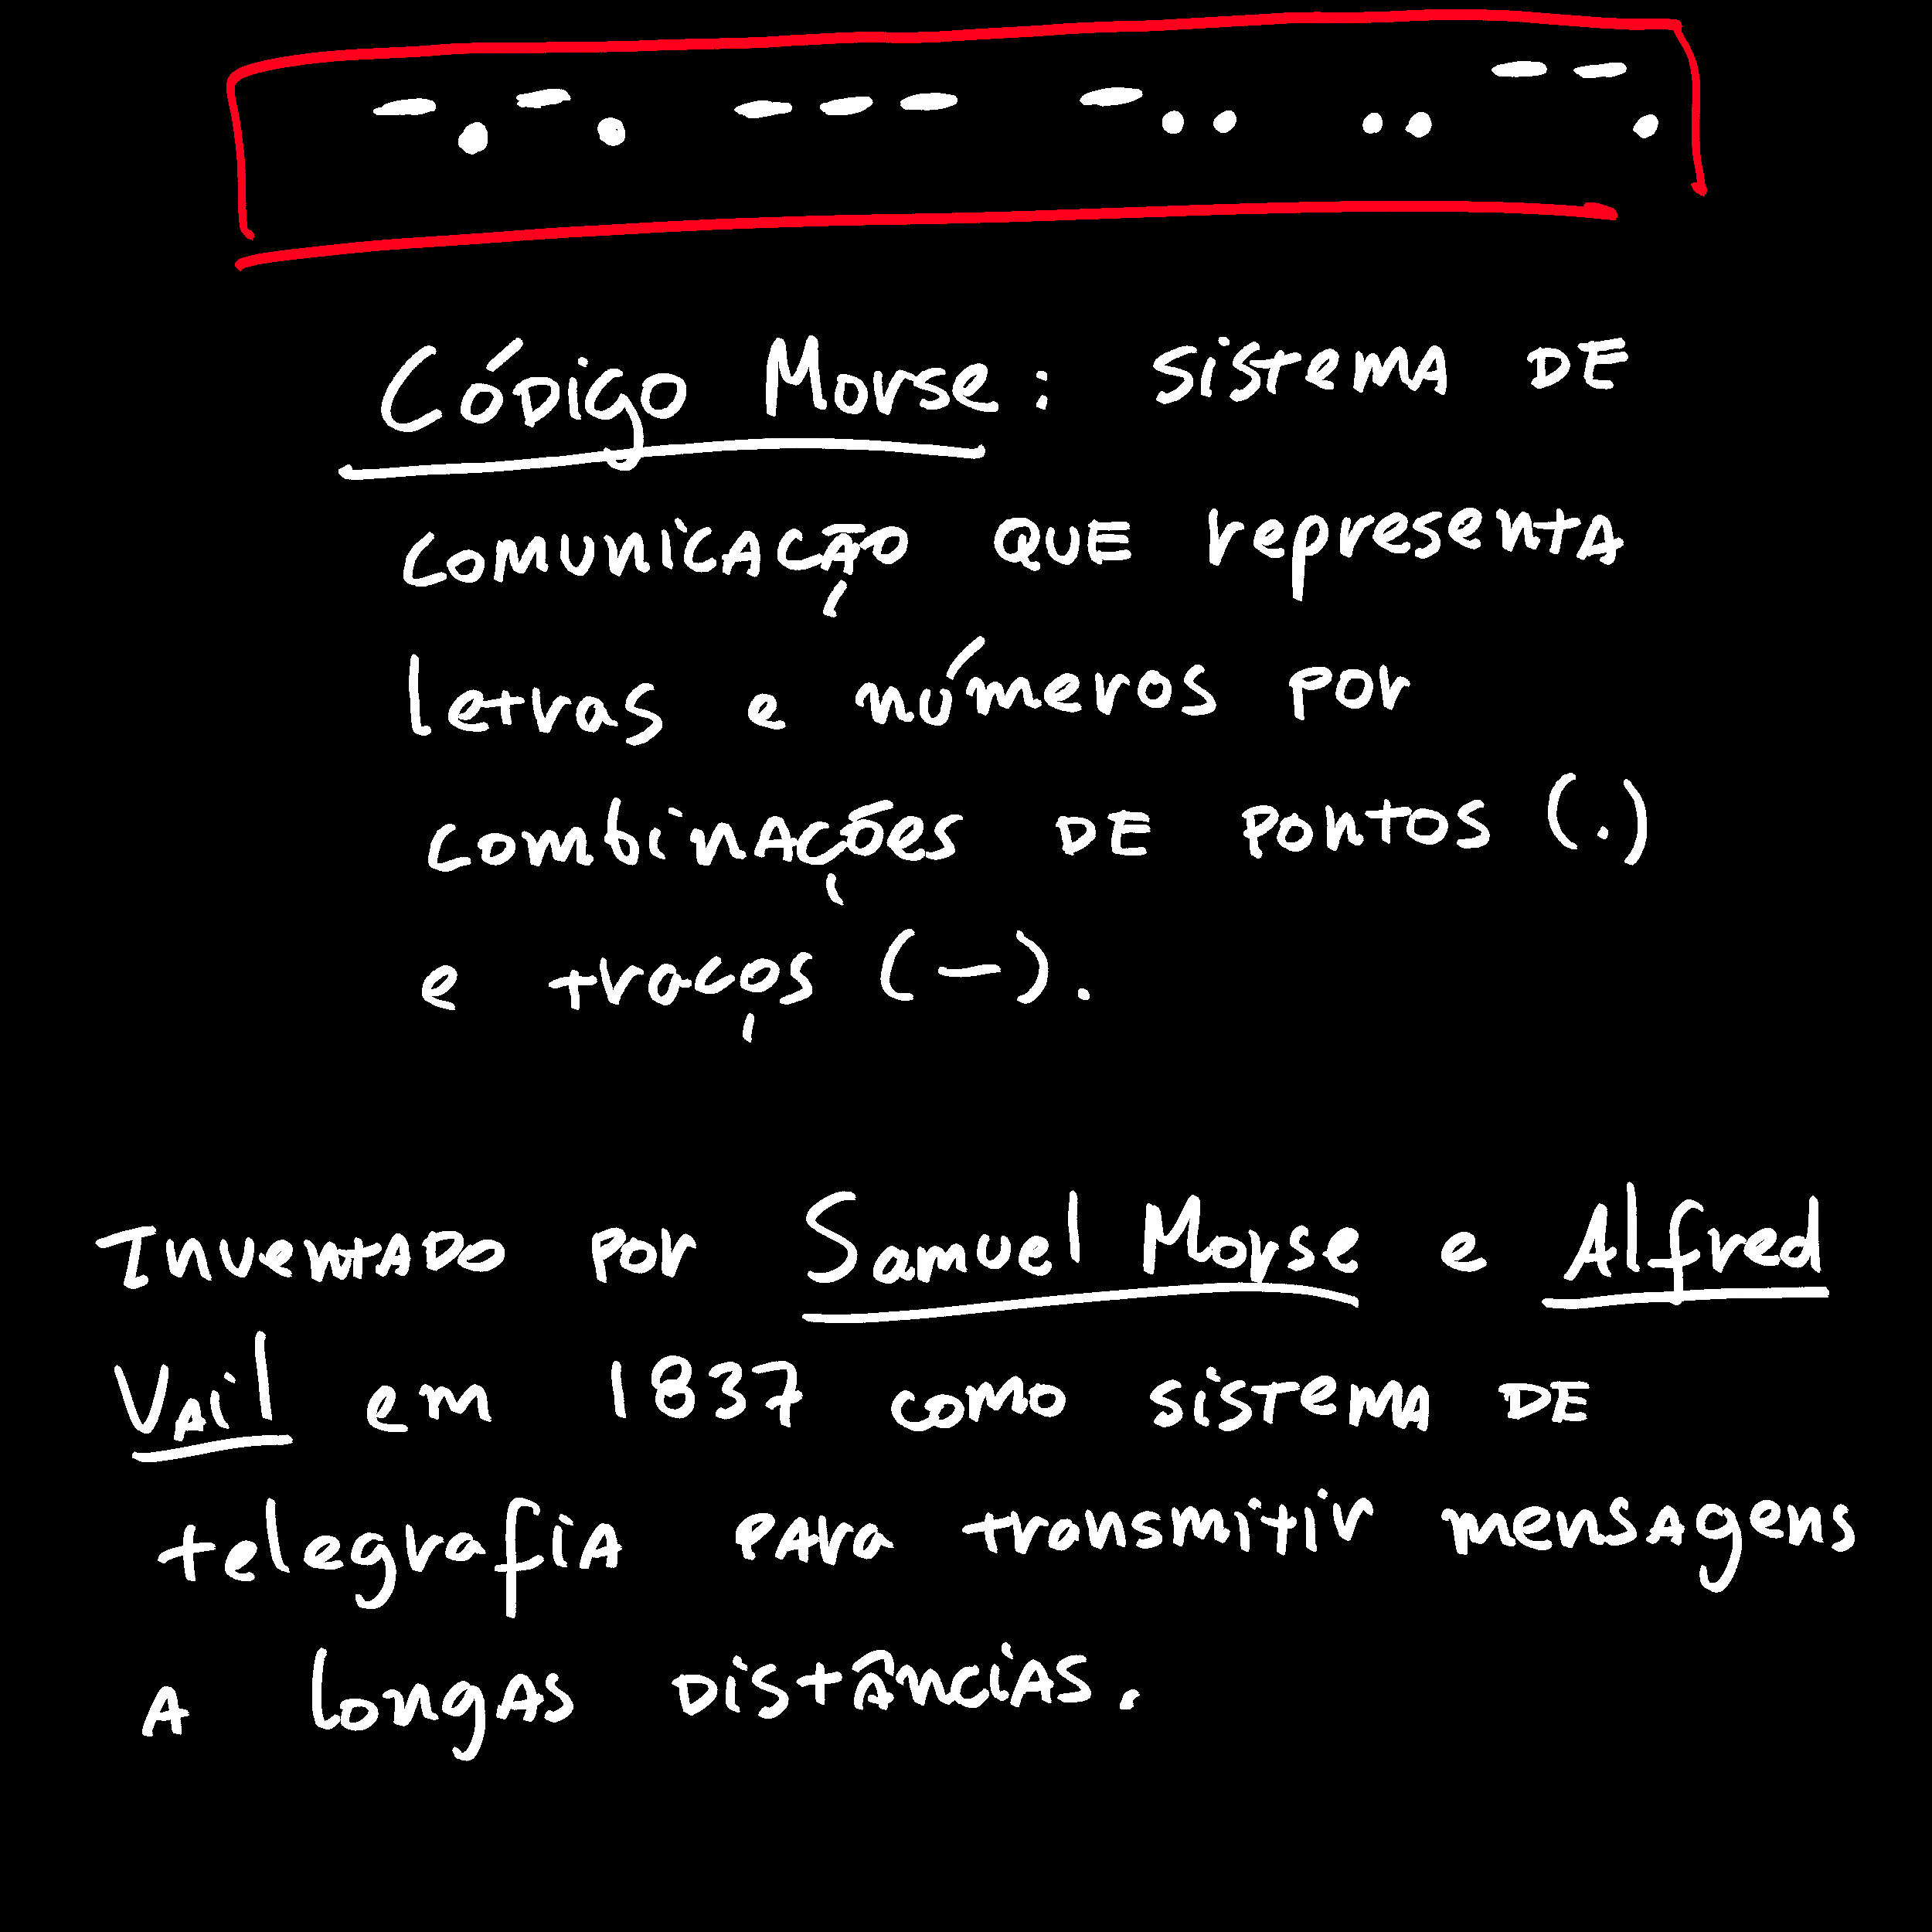 -.-. --- -.. .. --.
Código Morse: sistema de
comunicação que representa
letras e números por
combinações de pontos (.)
e traços (-).
Inventado por Samuel Morse e Alfred
Vail em 1837 como sistema de
telegrafia para transmitir mensagens
a longas distâncias.